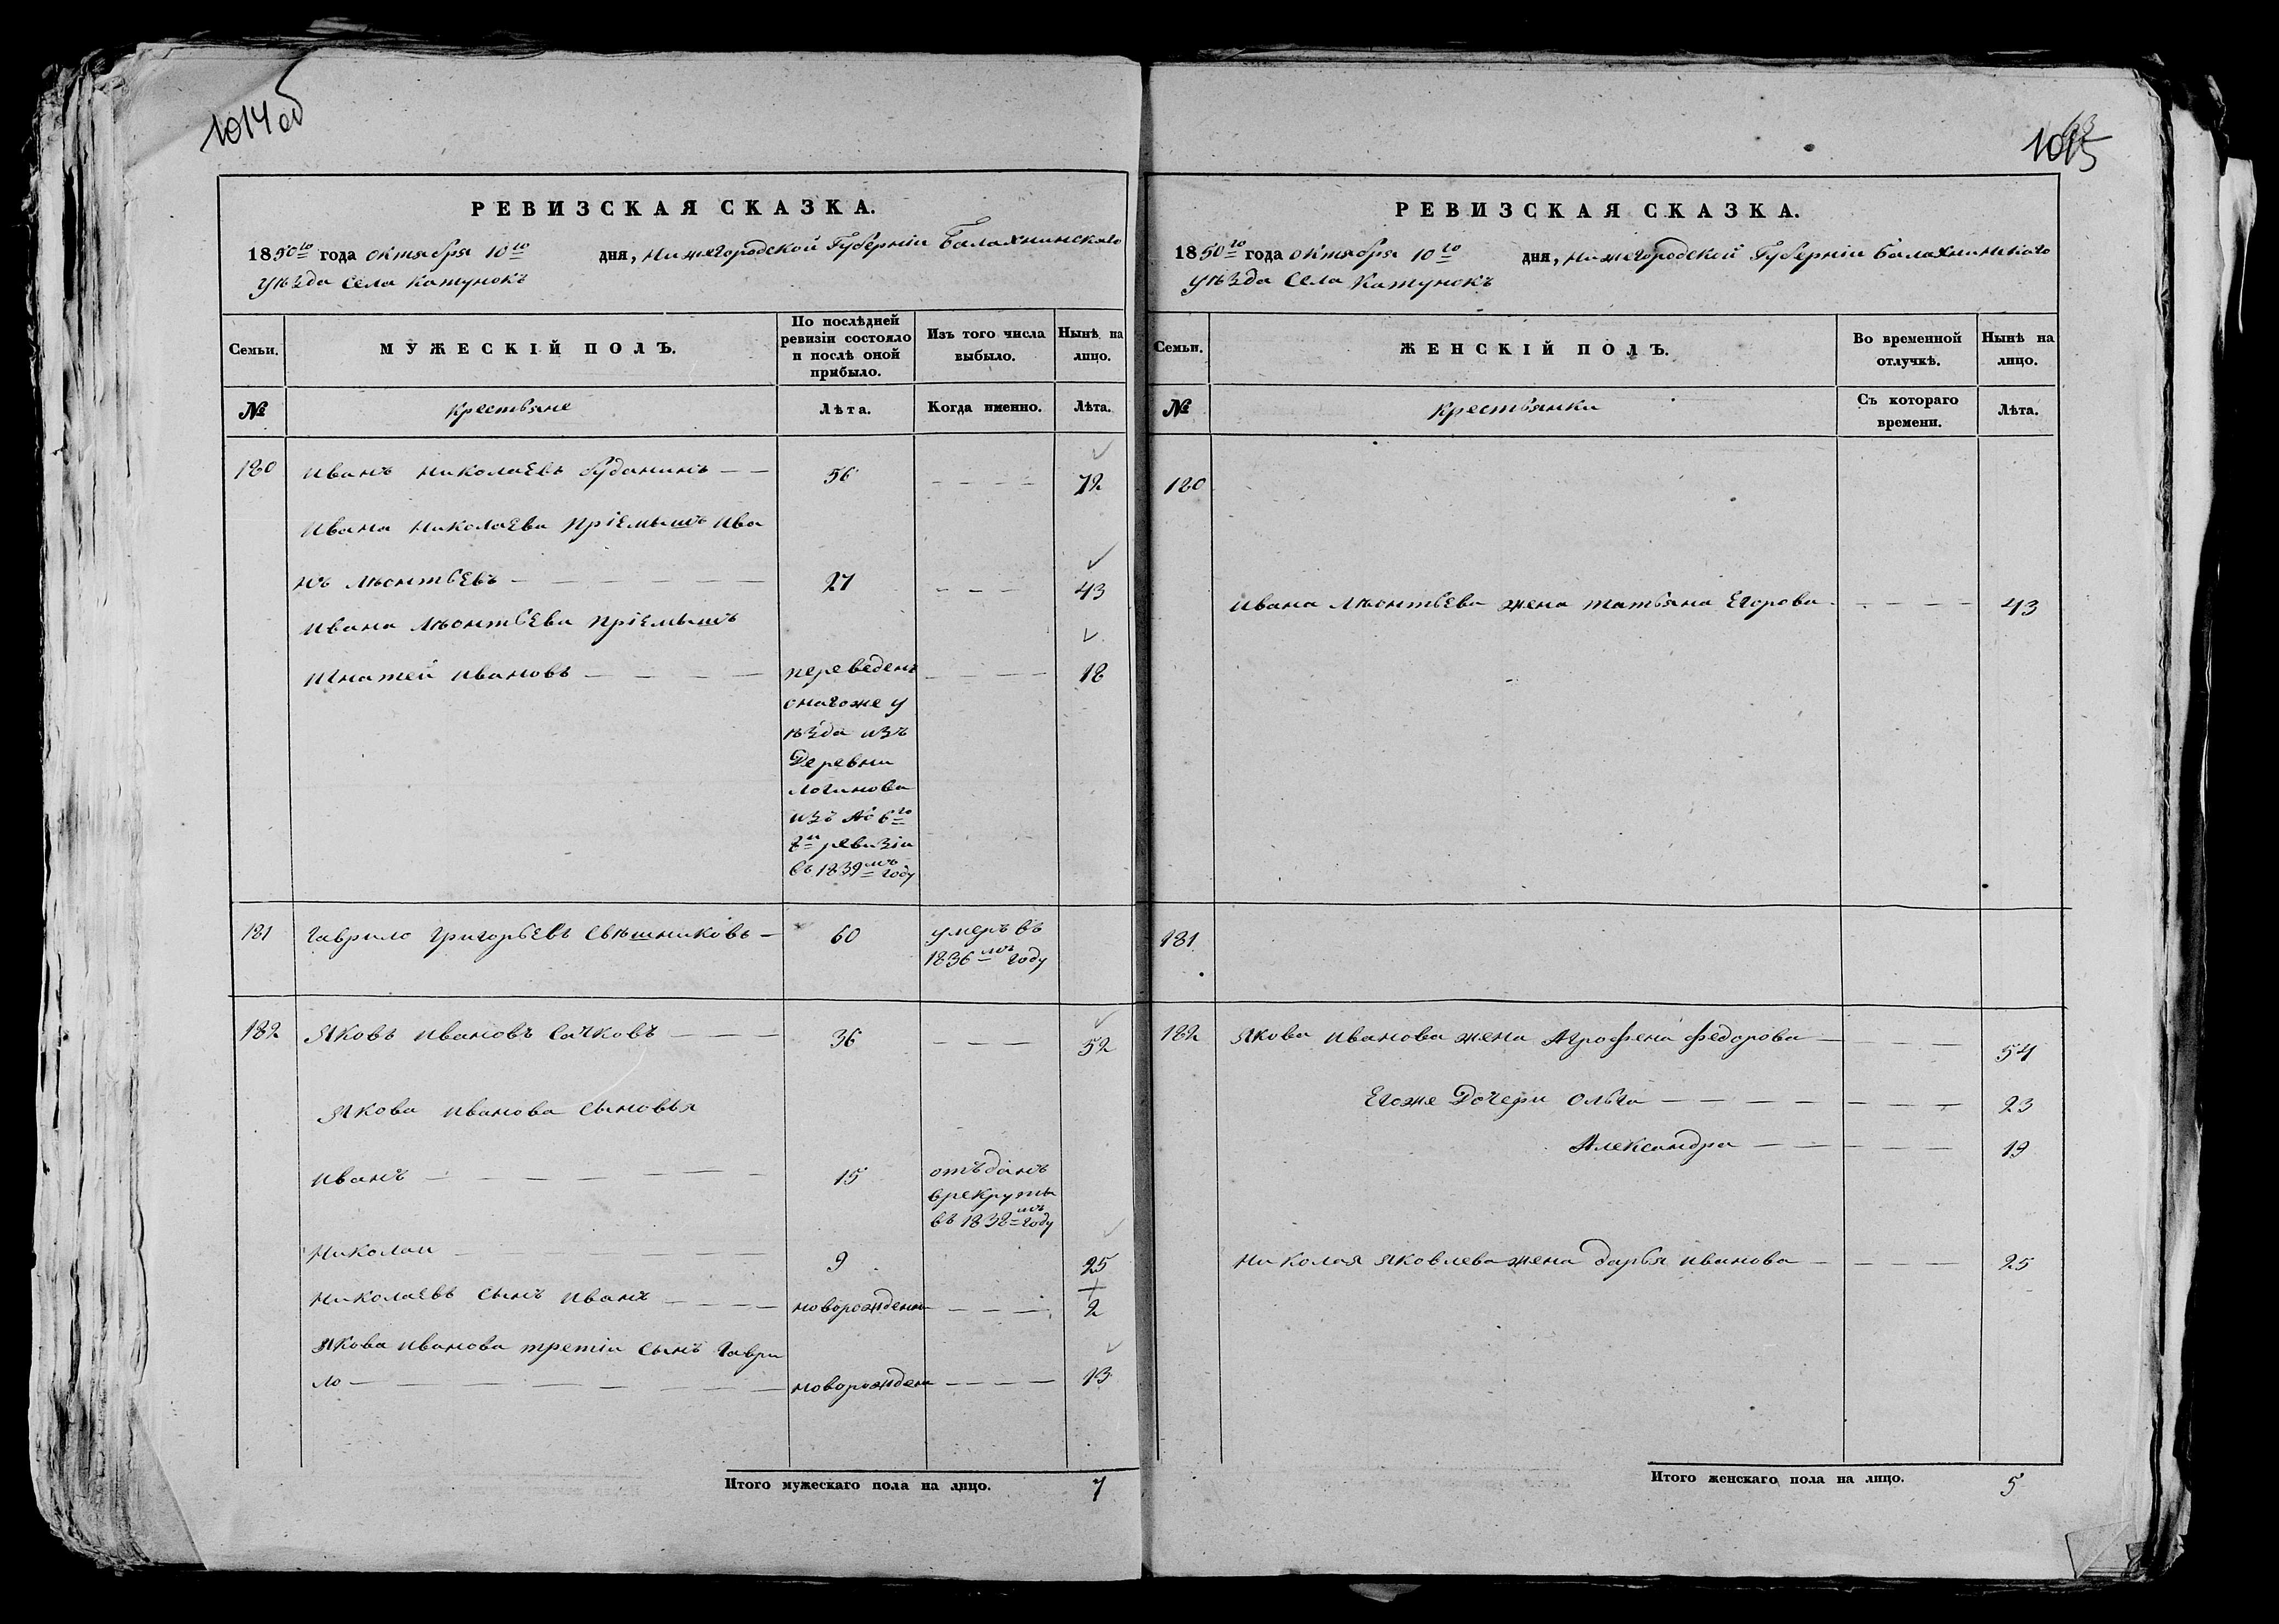 1014 об
РЕВИЗСКАЯ СКАЗКА.
1850го года октября 10го дня, Нижегородской Губерніи Балахнинскаго
уѣзда Села Катунокъ
Семьи.
МУЖЕСКІЙ ПОЛЪ.
По послѣдней ревизіи состояло и послѣ оной прибыло.
Изъ того числа выбыло.
Нынѣ на лицо.
№
Крестьяне
Лѣта.
Когда именно.
Лѣта.
180 Иванъ Николаевъ Буданинъ — — 56 — — — — 72
Ивана Николаева пріемышъ Ива
нъ Леонтьевъ — — — — — — 27 — — — 43
Ивана Леонтьева пріемышъ
Игнатей Ивановъ — — — — переведенъ — — — — 18
снагоже у
ѣзда изъ
Деревни
Логинова
изъ № 6го
8й ревизіи
въ 1839мъ году
181 Гаврило Григорьевъ Свѣшниковъ — 60 умеръ въ
1836мъ году
182 Яковъ Ивановъ Сачковъ — — — 36 — — — 52
Якова Иванова сыновья
Иванъ — — — — — — 15 отъданъ
врекруты
въ 1838мъ году
Николаи — — — — — 9 25
Николаевъ сынъ Иванъ — — — — новорожденъ — — — — 2
Якова Иванова третіи сынъ Гаври
ло — — — — — — — новорожден — — — — 13
Итого мужескаго пола на лицо. 7
1015
РЕВИЗСКАЯ СКАЗКА.
1850го года октября 10го дня, Нижегородской Губерніи Балахнинскаго
уѣзда Села Катунокъ
Семьи.
ЖЕНСКІЙ ПОЛЪ.
Во временной отлучкѣ.
Нынѣ на лицо.
№
Крестьянки
Съ котораго времени.
Лѣта.
180
Ивана Леонтьева жена Татьяна Егорова — — — — 43
181
182 Якова Иванова жена Агрофена Федорова — — — — 54
Егоже Дочери Ольга — — — — — — — 23
Александра — — — — — 19
Николая Яковлева жена Дарья Иванова — — — — 25
Итого женскаго пола на лицо. 5